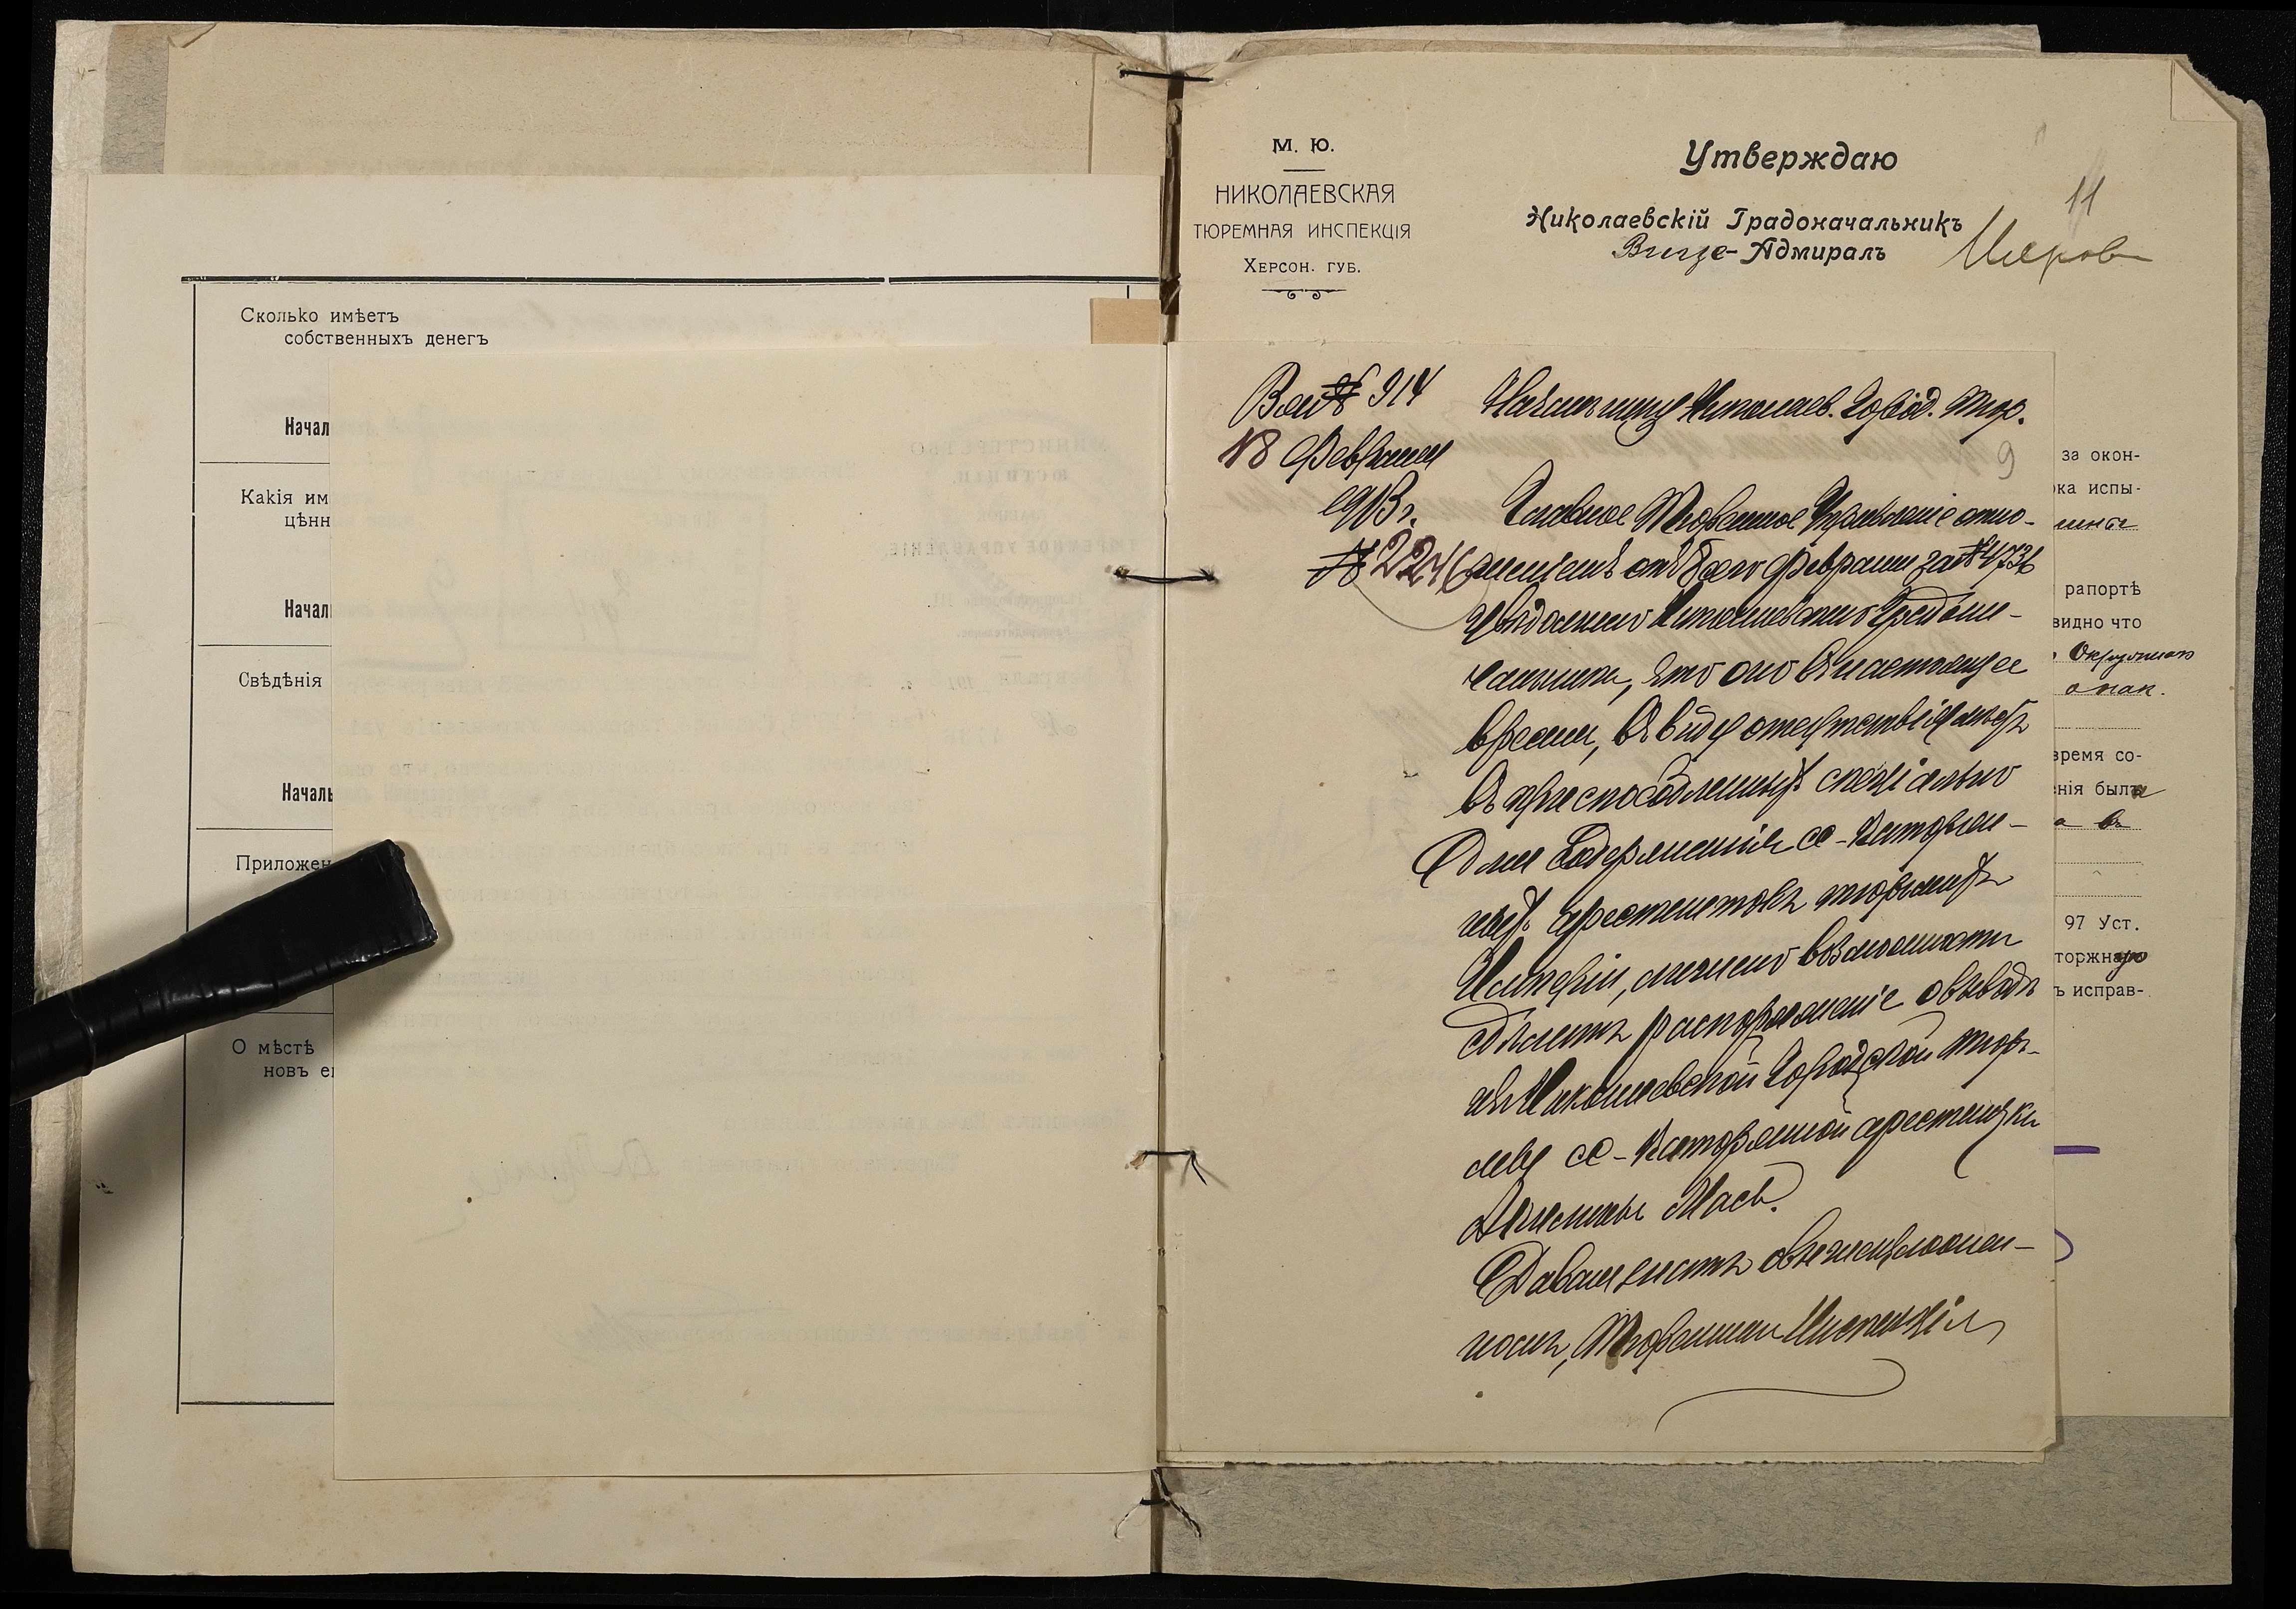 Сколько имѣетъ
собственныхъ денегъ
Начал
Какія им
цѣнн
Начал
Свѣдѣнія
Началь
Приложен
О мѣстѣ
новъ е
М. Ю.
НИКОЛАЕВСКАЯ
ТЮРЕМНАЯ ИНСПЕКЦІЯ
Херсон. губ.
Утверждаю
Николаевскій Градоначальникъ
Вице-Адмиралъ
11
№ 914
18 Февраля
1913 г.
№ 2246
Начальнику Николаев. Город. тюр.
9
Главное Тюремное Управленіе отно-
шеніемъ отъ Февраля за № 4736
увѣдомило Николаевскаго Градона-
чальника, что оно въ настоящее
время, въ виду отсутствія мѣстъ
въ приспособленныхъ спеціально
для содержанія с-каторж-
ныхъ арестантокъ тюрьмахъ
Имперіи, лишено возможности
сдѣлать распоряженіе о выводѣ
изъ Николаевской Городской тюрь-
мы с-каторжной арестантки
Мась.
Давая знать объ изложен-
номъ, Тюремная Инспекція
за окон-
ка испы-
рапортѣ
видно что
Окружного
время со-
нія была
а въ
97 Уст.
торжную
ъ исправ-